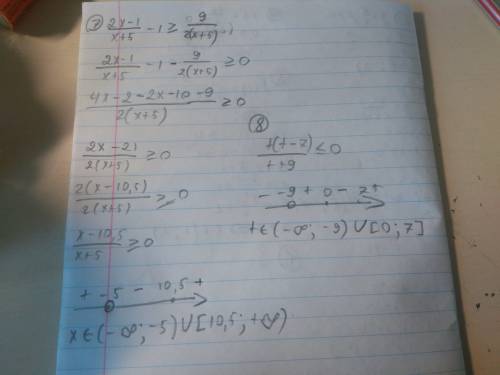 ⑦ (2x-1)/(x+5) - 1 ≥ 9/(2(x+5))
(2x-1)/(x+5) - 1 - 9/(2(x+5)) ≥ 0
(4x-2-2x-10-9)/(2(x+5)) ≥ 0
(2x-21)/(2(x+5)) ≥ 0
(2(x-10,5))/(2(x+5)) ≥ 0
(x-10,5)/(x+5) ≥ 0
+ -5 - 10,5 +
x∈(-∞; -5)∪[10,5; +∞)
⑧
t(t-7)/(t+9) ≤ 0
- -9 + 0 - 7 +
t∈(-∞; -9)∪[0; 7]